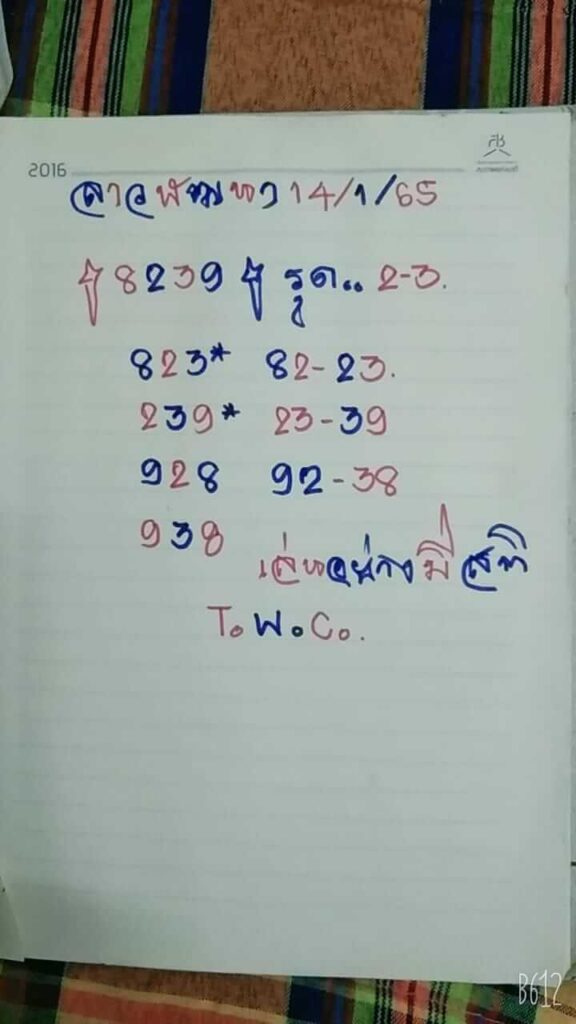 2016
ลาวพัฒนา 14/1/65
8239 รูด.. 2-3.
823* 82-23.
239* 23-39
928 92-38
938
เล่นอย่างมีสติ
T. W. Co.
B612